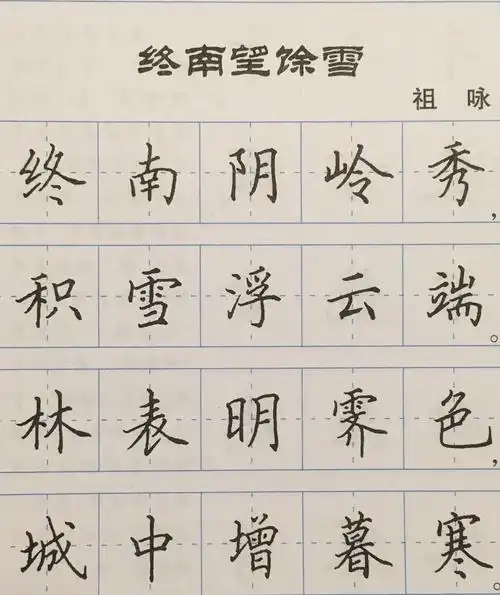 终南望馀雪
祖 咏
终南阴岭秀，
积雪浮云端。
林表明霁色，
城中增暮寒。